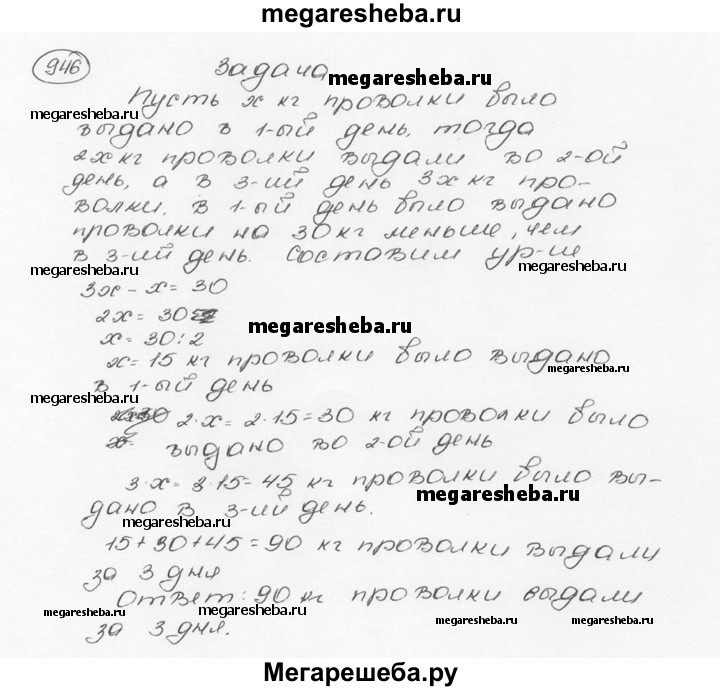 megaresheba.ru
946
Задача
megaresheba.ru
Пусть x кг проволки было
megaresheba.ru
megaresheba.ru
выдано в 1-ый день, тогда
2x кг проволки выдали во 2-ой
день, а в 3-ий день 3x кг про-
волки. В 1-ый день было выдано
проволки на 30 кг меньше, чем
в 3-ий день. Составим ур-ие
megaresheba.ru
megaresheba.ru
3x - x = 30
2x = 30
megaresheba.ru
x = 30:2
x = 15 кг проволки было выдано
megaresheba.ru
в 1-ый день
megaresheba.ru
2·x = 2·15 = 30 кг проволки было
выдано во 2-ой день
3·x = 3·15 = 45 кг проволки было вы-
megaresheba.ru
дано в 3-ий день.
megaresheba.ru
15+30+45=90 кг проволки выдали
за 3 дня
Ответ: 90 кг проволки выдали
megaresheba.ru
megaresheba.ru
megaresheba.ru
за 3 дня.
Мегарешеба.ру